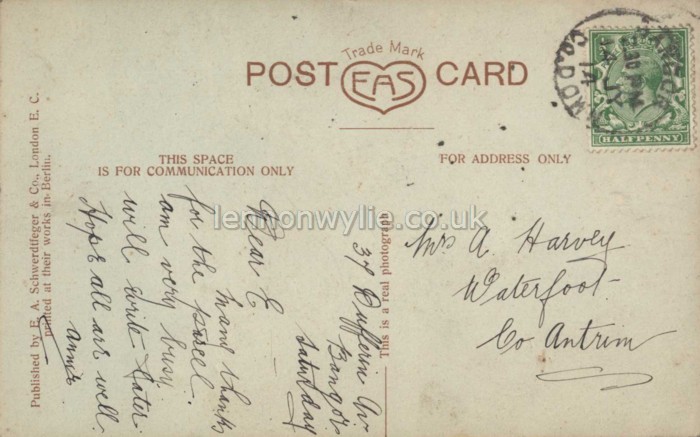 Trade Mark
POST EAS CARD
THIS SPACE
IS FOR COMMUNICATION ONLY
FOR ADDRESS ONLY
37 Dufferin Av
Bangor
Saturday
Dear E
Many thanks
for the parcel.
am very busy.
will write later
Hope all are well.
Annie
Mrs A Harvey
Waterfoot
Co Antrim
Published by E. A. Schwerdtfeger & Co., London E. C.
printed at their works in Berlin.
This is a real photograph
BANGOR
CO. DOWN
14
HALFPENNY
lennonwylie.co.uk